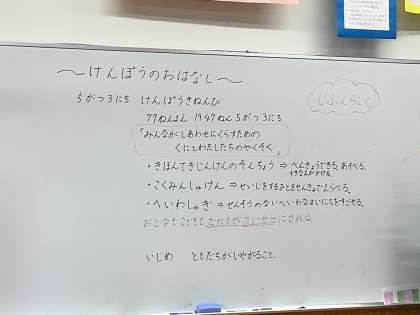 ～けんぽうのおはなし～
じぶんらしく
5がつ3にち けんぽうきねんび
77ねんまえ 1947ねん5がつ3にち
「みんながしあわせにくらすための
くにとわたしたちのやくそく」
・きほんてきじんけんのそんちょう ⇒ べんきょうできる。あそべる。
・こくみんしゅけん ⇒ せいじをするひとをせんきょでえらべる。
・へいわしゅぎ ⇒ せんそうのないへいわなまいにちをすごせる。
おとなもこどももだれもがたいせつにされる
いじめ ともだちがいやがること